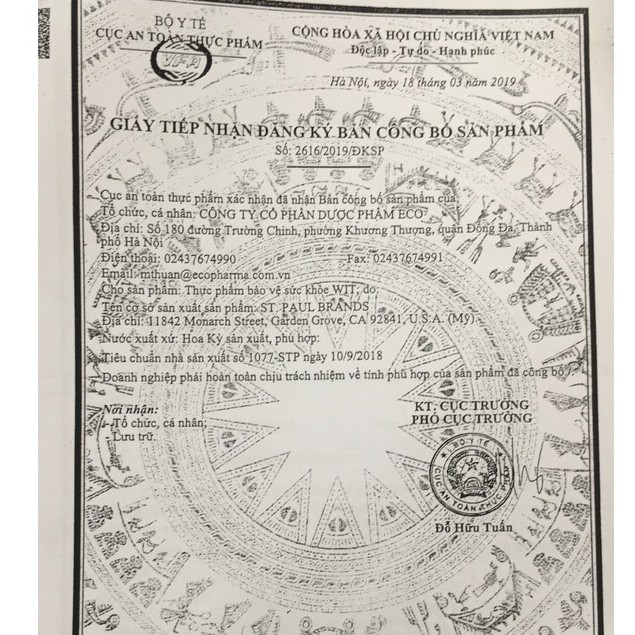 BỘ Y TẾ
CỤC AN TOÀN THỰC PHẨM
VFA
CỘNG HÒA XÃ HỘI CHỦ NGHĨA VIỆT NAM
Độc lập - Tự do - Hạnh phúc
Hà Nội, ngày 18 tháng 03 năm 2019
GIẤY TIẾP NHẬN ĐĂNG KÝ BẢN CÔNG BỐ SẢN PHẨM
Số: 2616/2019/ĐKSP
Cục an toàn thực phẩm xác nhận đã nhận Bản công bố sản phẩm của:
Tổ chức, cá nhân: CÔNG TY CỔ PHẦN DƯỢC PHẨM ECO
Địa chỉ: Số 180 đường Trường Chinh, phường Khương Thượng, quận Đống Đa, Thành
phố Hà Nội
Điện thoại: 02437674990 Fax: 02437674991
Email: mthuan@ecopharma.com.vn
Cho sản phẩm: Thực phẩm bảo vệ sức khỏe WIT; do:
Tên cơ sở sản xuất sản phẩm: ST. PAUL BRANDS
Địa chỉ: 11842 Monarch Street, Garden Grove, CA 92841, U.S.A. (Mỹ)
Nước xuất xứ: Hoa Kỳ sản xuất, phù hợp:
Tiêu chuẩn nhà sản xuất số 1077-STP ngày 10/9/2018
Doanh nghiệp phải hoàn toàn chịu trách nhiệm về tính phù hợp của sản phẩm đã công bố./.
Nơi nhận:
- Tổ chức, cá nhân;
- Lưu trữ.
KT. CỤC TRƯỞNG
PHÓ CỤC TRƯỞNG
BỘ Y TẾ
CỤC AN TOÀN THỰC PHẨM
Đỗ Hữu Tuấn